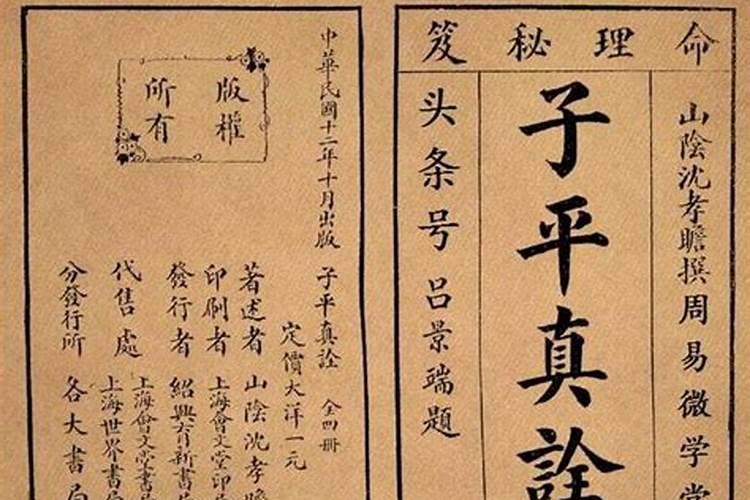 命理秘笈
山陰沈孝瞻撰周易微学堂
子平真詮
头条号吕景端題
中華民國十二年十月出版
版權
所有
子平真詮 全四冊
定價大洋一元
著述者 山陰沈孝瞻
印刷者 上海會文堂印
發行者 紹興育新書
代售處 上海會文堂書局
上海世界書局
分發行所 各大書局